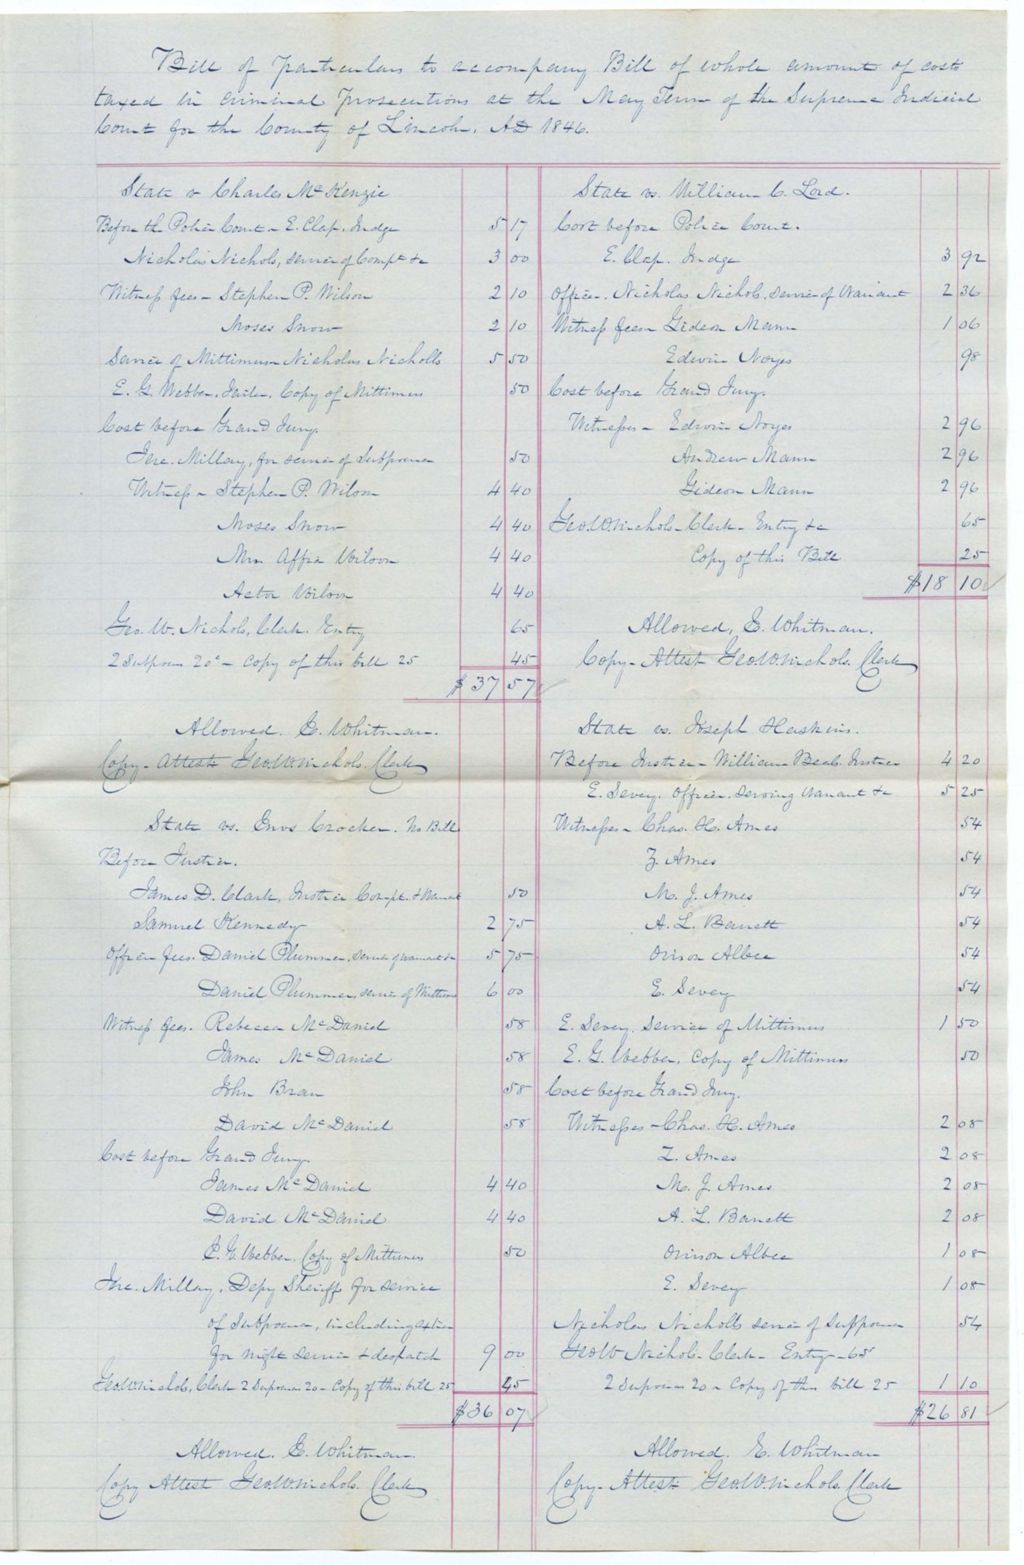 Bill of Particulars to accompany Bill of whole amount of costs
taxed in Criminal Prosecutions at the May Term of the Supreme Judicial
Court for the County of Lincoln, AD 1846.
State v Charles McKenzie
Before the Police Court - E. Clap. Judge 5 17
Nicholas Nichols, service of Compt &c 3 00
Witness fees - Stephen P. Wilson 2 10
Moses Snow 2 10
Service of Mittimus Nicholas Nicholls 5 50
E. G. Webber, Jailer, Copy of Mittimus 50
Cost before Grand Jury.
Jne. Millay, for service of Subpoena 50
Witness - Stephen P. Wilson 4 40
Moses Snow 4 40
Mrs Affia Wilson 4 40
Actor Wilson 4 40
Geo. W. Nichols, Clerk. Entry 65
2 Subpoenas 20c - copy of this bill 25 45
$ 37 57
Allowed. E. Whitman.
Copy - Attest Geo. W. Nichols. Clerk
State vs. Enos Crocker. No Bill
Before Justice.
James D. Clark, Justice Compt. & Warrant 50
Samuel Kennedy 2 75
Officer fees. Daniel Plummer, service of warrant &c 5 75
Daniel Plummer, service of Mittimus 6 00
Witness fees. Rebecca McDaniel 58
James McDaniel 58
John Bran 58
David McDaniel 58
Cost before Grand Jury
James McDaniel 4 40
David McDaniel 4 40
E. G. Webber, Copy of Mittimus 50
Jne. Millay, Depy Sheriff for service
of Subpoena, including extra
for night service & despatch 9 00
Geo W Nichols, Clerk 2 Supoenas 20 - Copy of this bill 25 45
$36 07
Allowed. E. Whitman.
Copy Attest Geo. W. Nichols. Clerk
State vs. William C. Lord.
Cost before Police Court.
E. Clap. Judge 3 92
Officer. Nicholas Nichols, service of Warrant 2 36
Witness fees Gideon Mann 1 06
Edwin Noyes 98
Cost before Grand Jury.
Witnesses - Edwin Noyes 2 96
Andrew Mann 2 96
Gideon Mann 2 96
Geo. W. Nichols - Clerk - Entry &c 65
Copy of this Bill 25
$18 10
Allowed, E. Whitman.
Copy - Attest Geo. W. Nichols. Clerk
State vs. Joseph Haskins.
Before Justice - William Beals. Justice 4 20
E. Sevey. Officer. serving Warrant &c 5 25
Witnesses - Chas. H. Ames 54
Z. Ames 54
M. J. Ames 54
A. L. Barrett 54
Orison Albee 54
E. Sevey 54
E. Sevey, Service of Mittimus 1 50
E. G. Webber, Copy of Mittimus 50
Cost before Grand Jury.
Witnesses - Chas. H. Ames 2 08
Z. Ames 2 08
M. J. Ames 2 08
A. L. Barrett 2 08
Orison Albee 1 08
E. Sevey 1 08
Nicholas Nicholls service of Suppoena 54
Geo W Nichols. Clerk - Entry - 65
2 Supoenas 20 - Copy of this bill 25 1 10
$26 81
Allowed. E. Whitman
Copy - Attest Geo. W. Nichols, Clerk